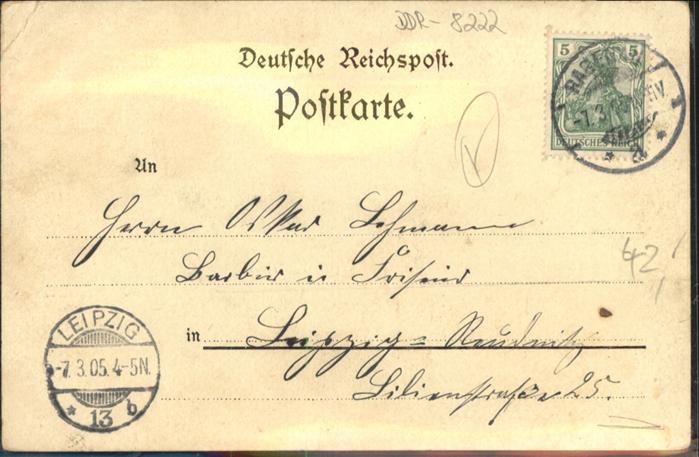 DDR-8222
Deutsche Reichspost.
Postkarte.
5 5
DEUTSCHES REICH
RABE
-7.3.05 V
* a *
An
Herrn Oskar Lehmann
Barbier u Friseur
in Leipzig=Reudnitz
Lilienstraße 25.
42
LEIPZIG
-7.3.05.4-5N.
* 13 b